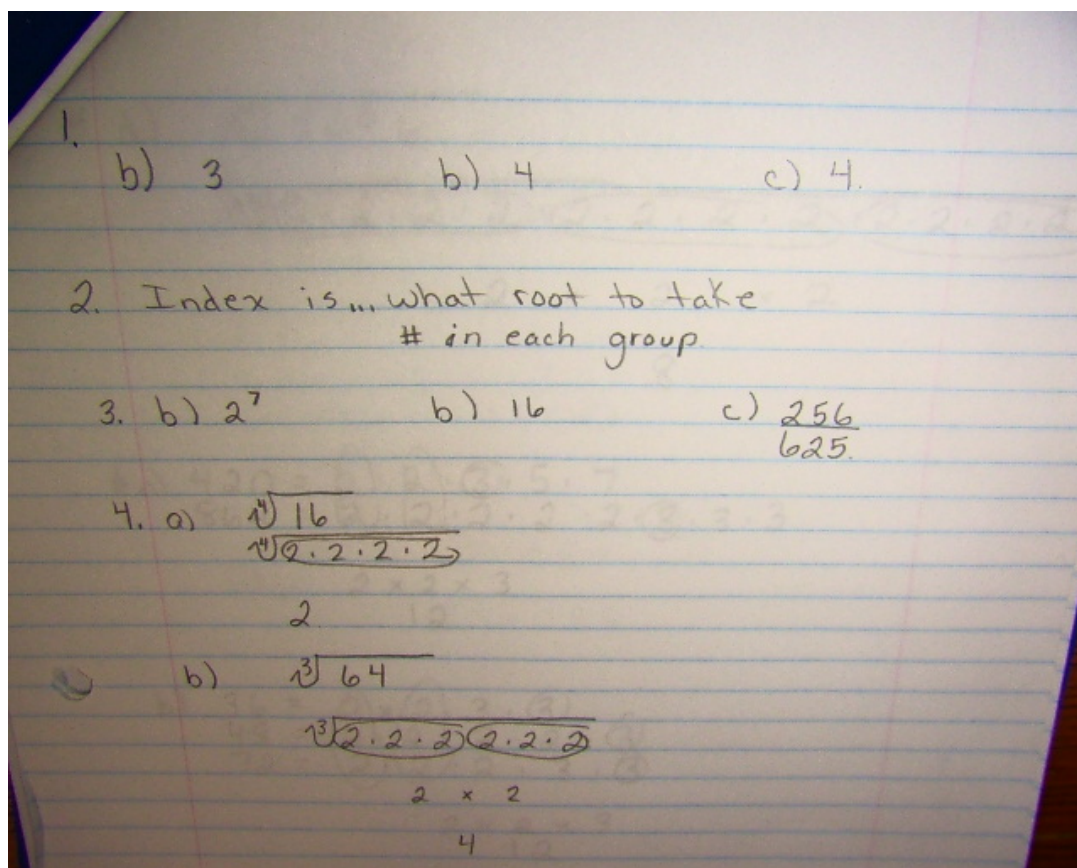 1.
b) 3 b) 4 c) 4.
2. Index is... what root to take
# in each group.
3. b) 2⁷ b) 16 c) 256/625.
4. a) ∜16
∜2·2·2·2
2
b) ∛64
∛(2·2·2)(2·2·2)
2 × 2
4